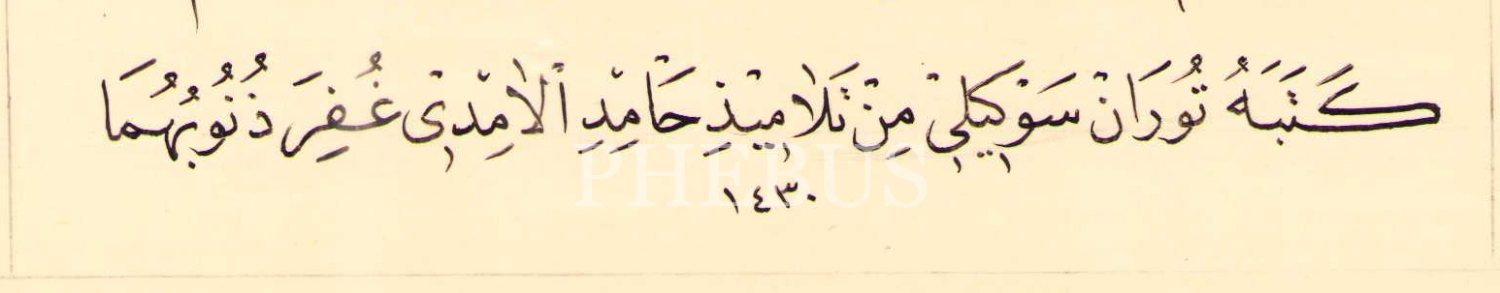 كَتَبَهُ تُورَانْ سَوْكِيلِي مِنْ تَلَامِيذِ حَامِدِ الْآمِدِي غُفِرَ ذُنُوبُهُمَا
١٤٣٠
PHEBUS